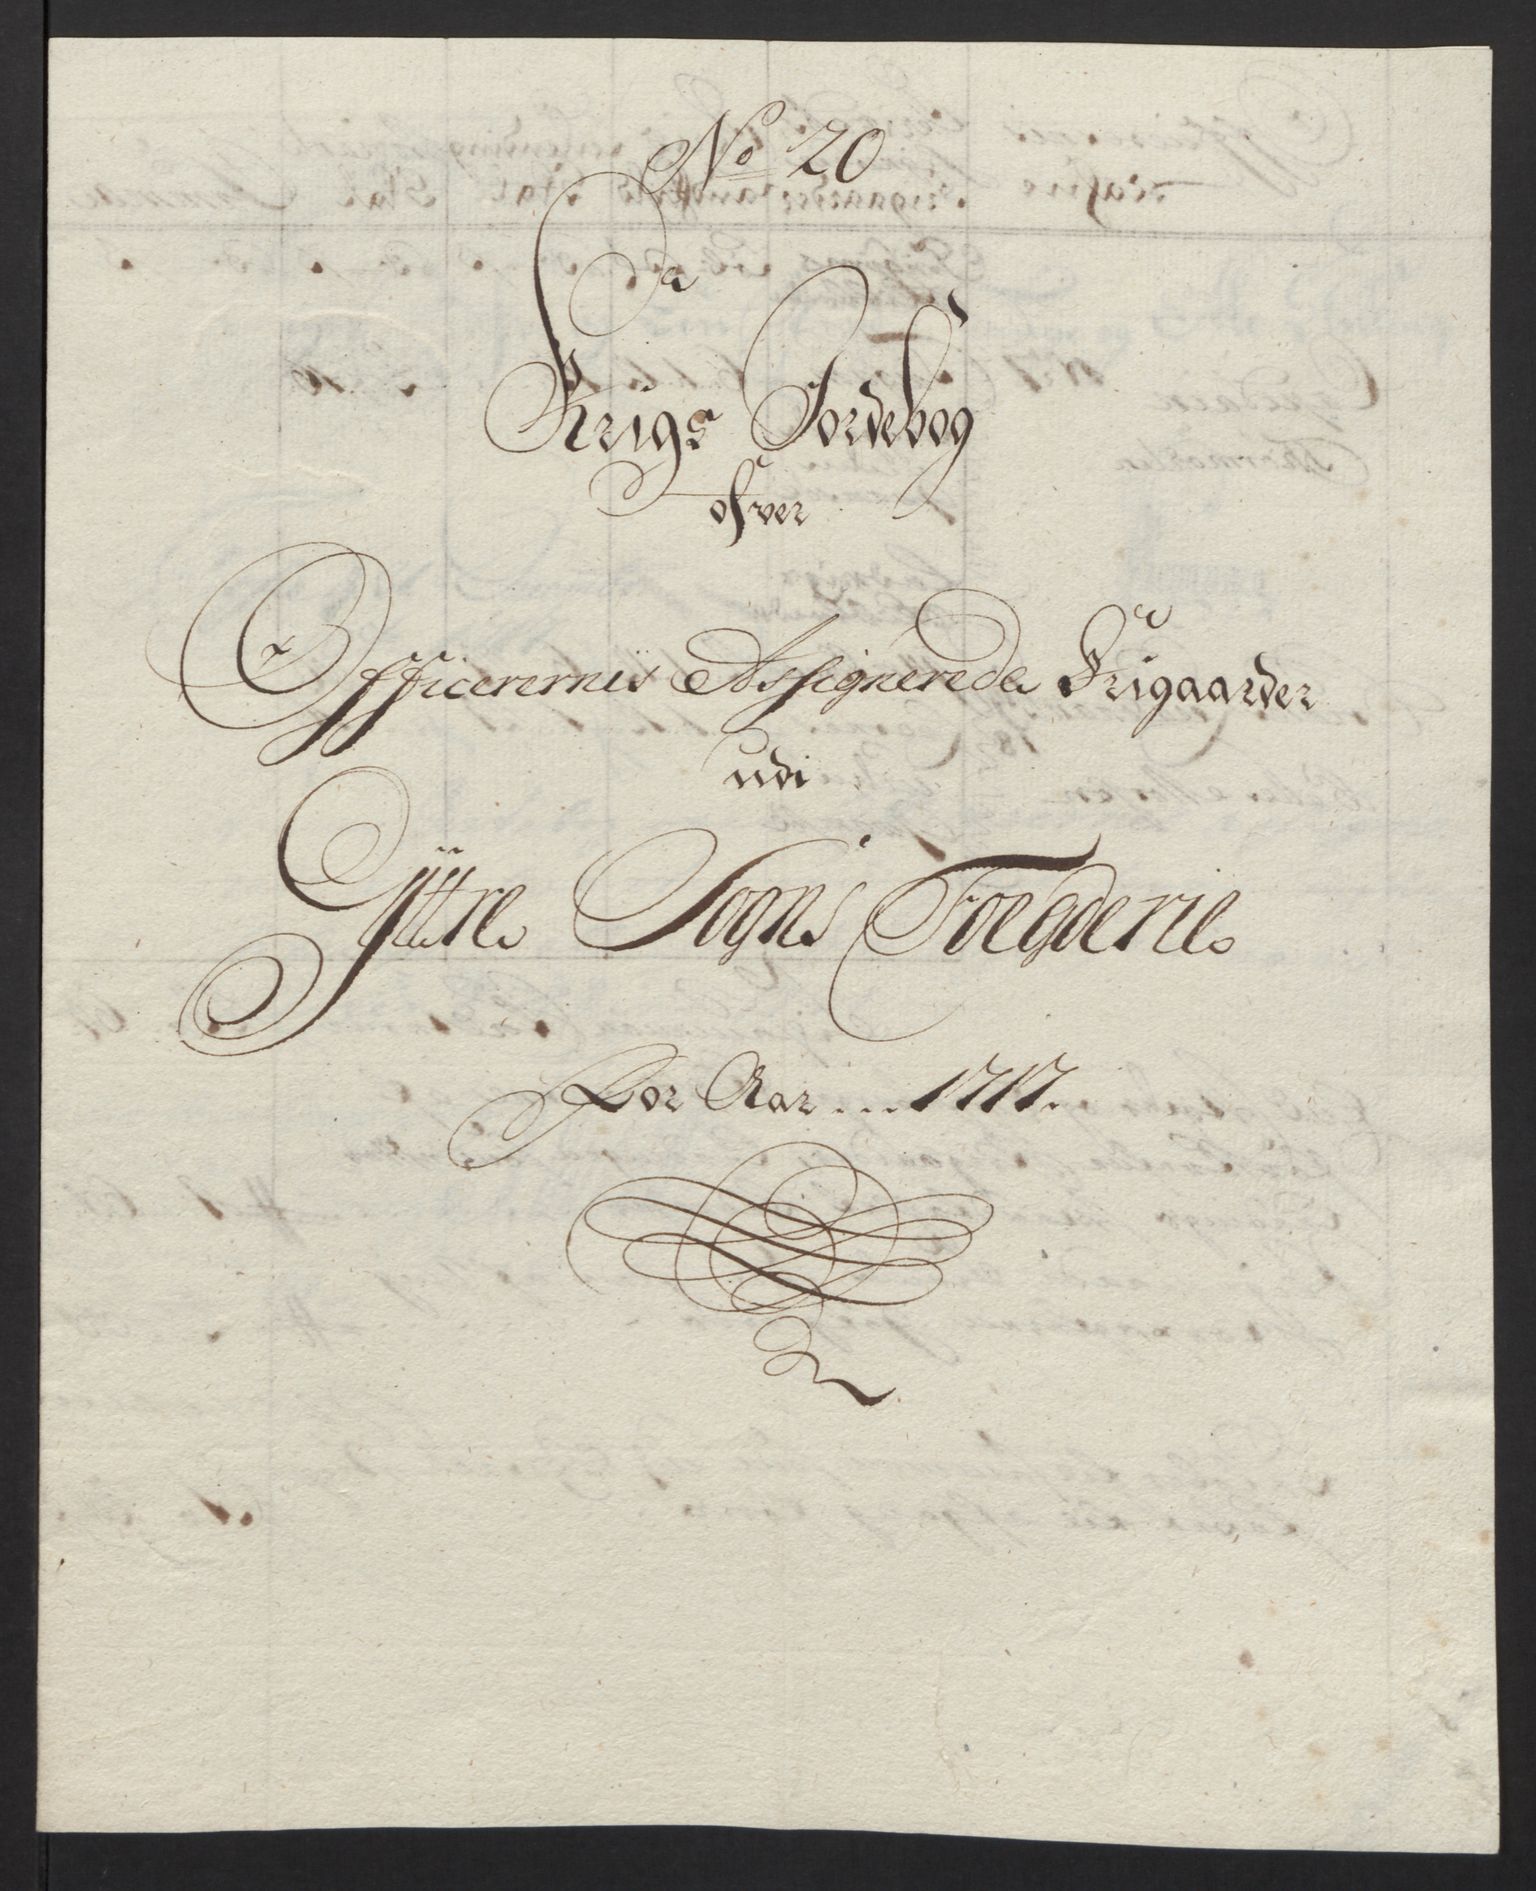 No 20
Krigs Jordebog
ofver
Officerernis Assignerede Frigaarder
udi
Ÿttre Sogns Foegderie
For Aar ... 1717.